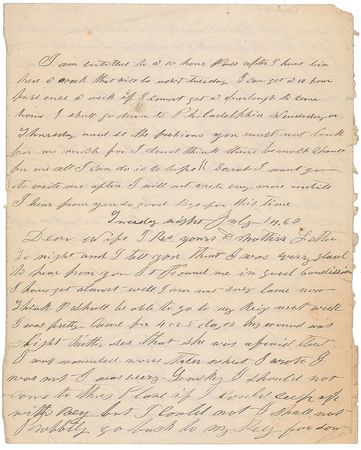 I am entitled to a 10 hour Pass after I have bin
here a week that will be next Tuesday I can get a 10 hour
pass once a week if I cannot get a furlough to come
home I shall go down to Philadelphia Wednesday or
Thursday and se the fashions you must not look
for me much for I dont think there is much chance
for me all I can do is to hope Sarah I want you
to write me often I will not write any more untill
I hear from you so good bye for this time
Tuesday night July 14 63
Dear Wife I Rec yours & Mothers Letter
to night and I tell you that I was very glad
to hear from you It found me in good Condition
I have got almost well I am not very lame now
think I shall be able to go to my Reg next week
I was pretty lame for 4 or 5 days My wound was
slight Mother ses that she was afraid that
I was wounded worse than what I wrote I
was not I was very lucky I should not
come to this Place if I could keep up
with Reg but I could not I shall not
Probbily go back to my Reg for some